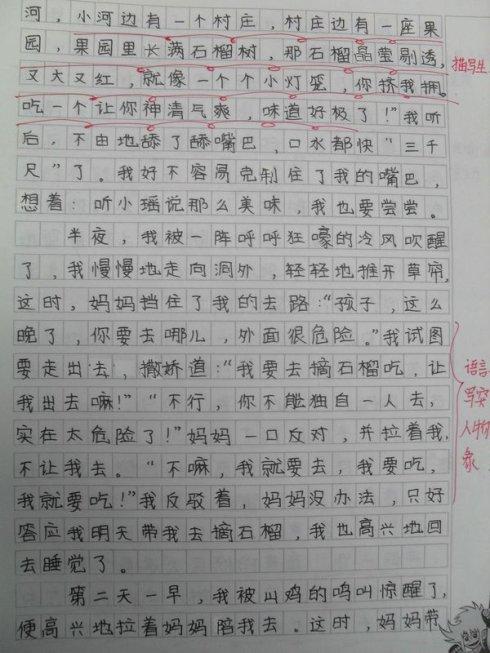 河，小河边有一个村庄，村庄边有一座果
园，果园里长满石榴树，那石榴晶莹剔透，
又大又红，就像一个个小灯笼，你挤我拥。
吃一个让你神清气爽，味道好极了！”我听
后，不由地舔了舔嘴巴，口水都快“三千
尺”了。我好不容易克制住了我的嘴巴，
想着：听小瑶说那么美味，我也要尝尝。
半夜，我被一阵呼呼狂嚎的冷风吹醒
了，我慢慢地走向洞外，轻轻地推开草帘，
这时，妈妈挡住了我的去路：“孩子，这么
晚了，你要去哪儿，外面很危险。”我试图
要走出去，撒娇道：“我要去摘石榴吃，让
我出去嘛！”“不行，你不能独自一人去，
实在太危险了！”妈妈一口反对，并拉着我，
不让我去。“不嘛，我就要去，我要吃，
我就要吃！”我反驳着，妈妈没办法，只好
答应我明天带我去摘石榴，我也高兴地回
去睡觉了。
第二天一早，我被山鸡的鸣叫惊醒了，
便高兴地拉着妈妈陪我去。这时，妈妈带
描写生
语言
写突
人物形
象